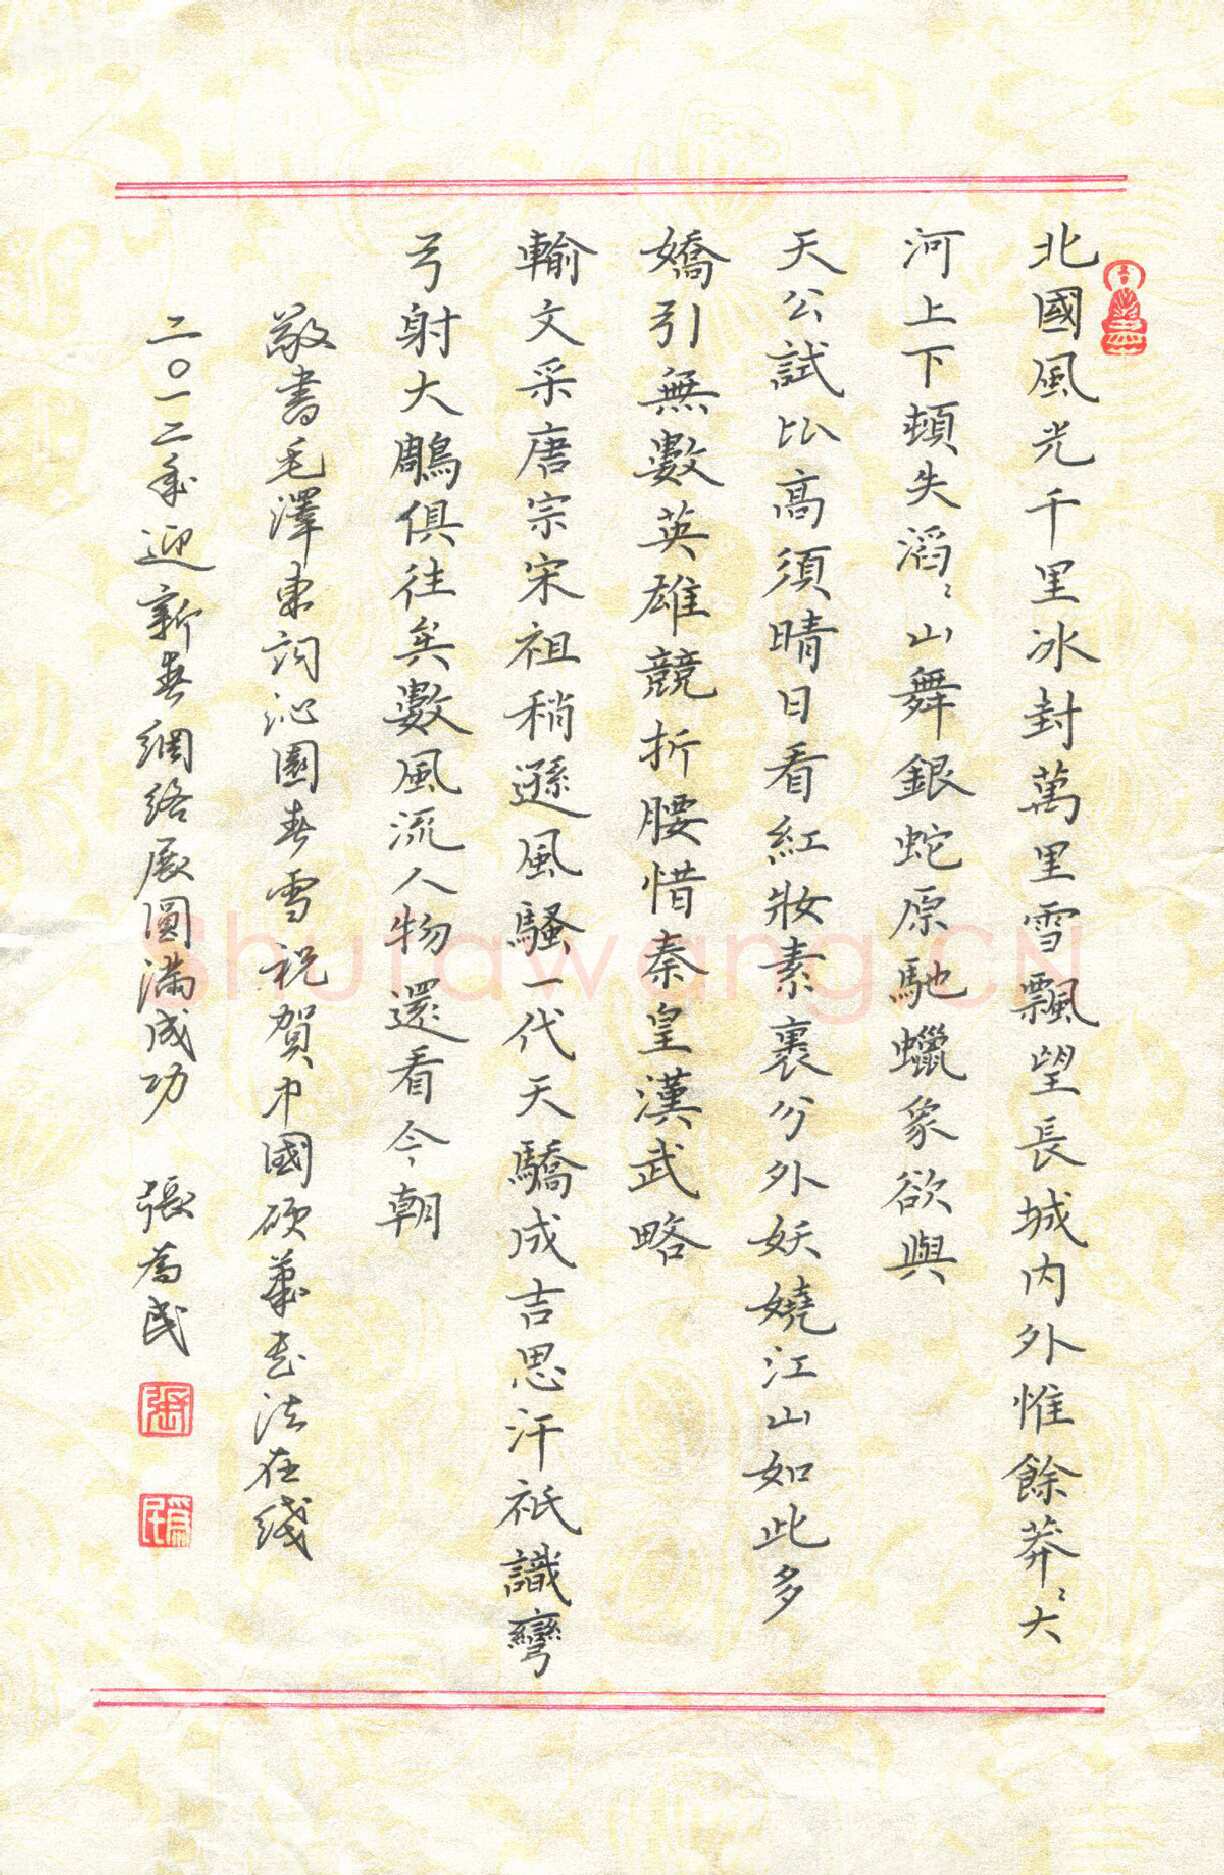 北國風光千里冰封萬里雪飄望長城内外惟餘莽〻大
河上下頓失滔〻山舞銀蛇原馳蠟象欲與
天公試比高須晴日看紅妝素裹分外妖嬈江山如此多
嬌引無數英雄競折腰惜秦皇漢武略
輸文采唐宗宋祖稍遜風騷一代天驕成吉思汗祇識彎
弓射大鵰俱往矣數風流人物還看今朝
敬書毛澤東詞沁園春雪祝賀中國硬筆书法在线
二〇一二年迎新春網络展圓滿成功 張為民
張
為民
Shufawang.CN